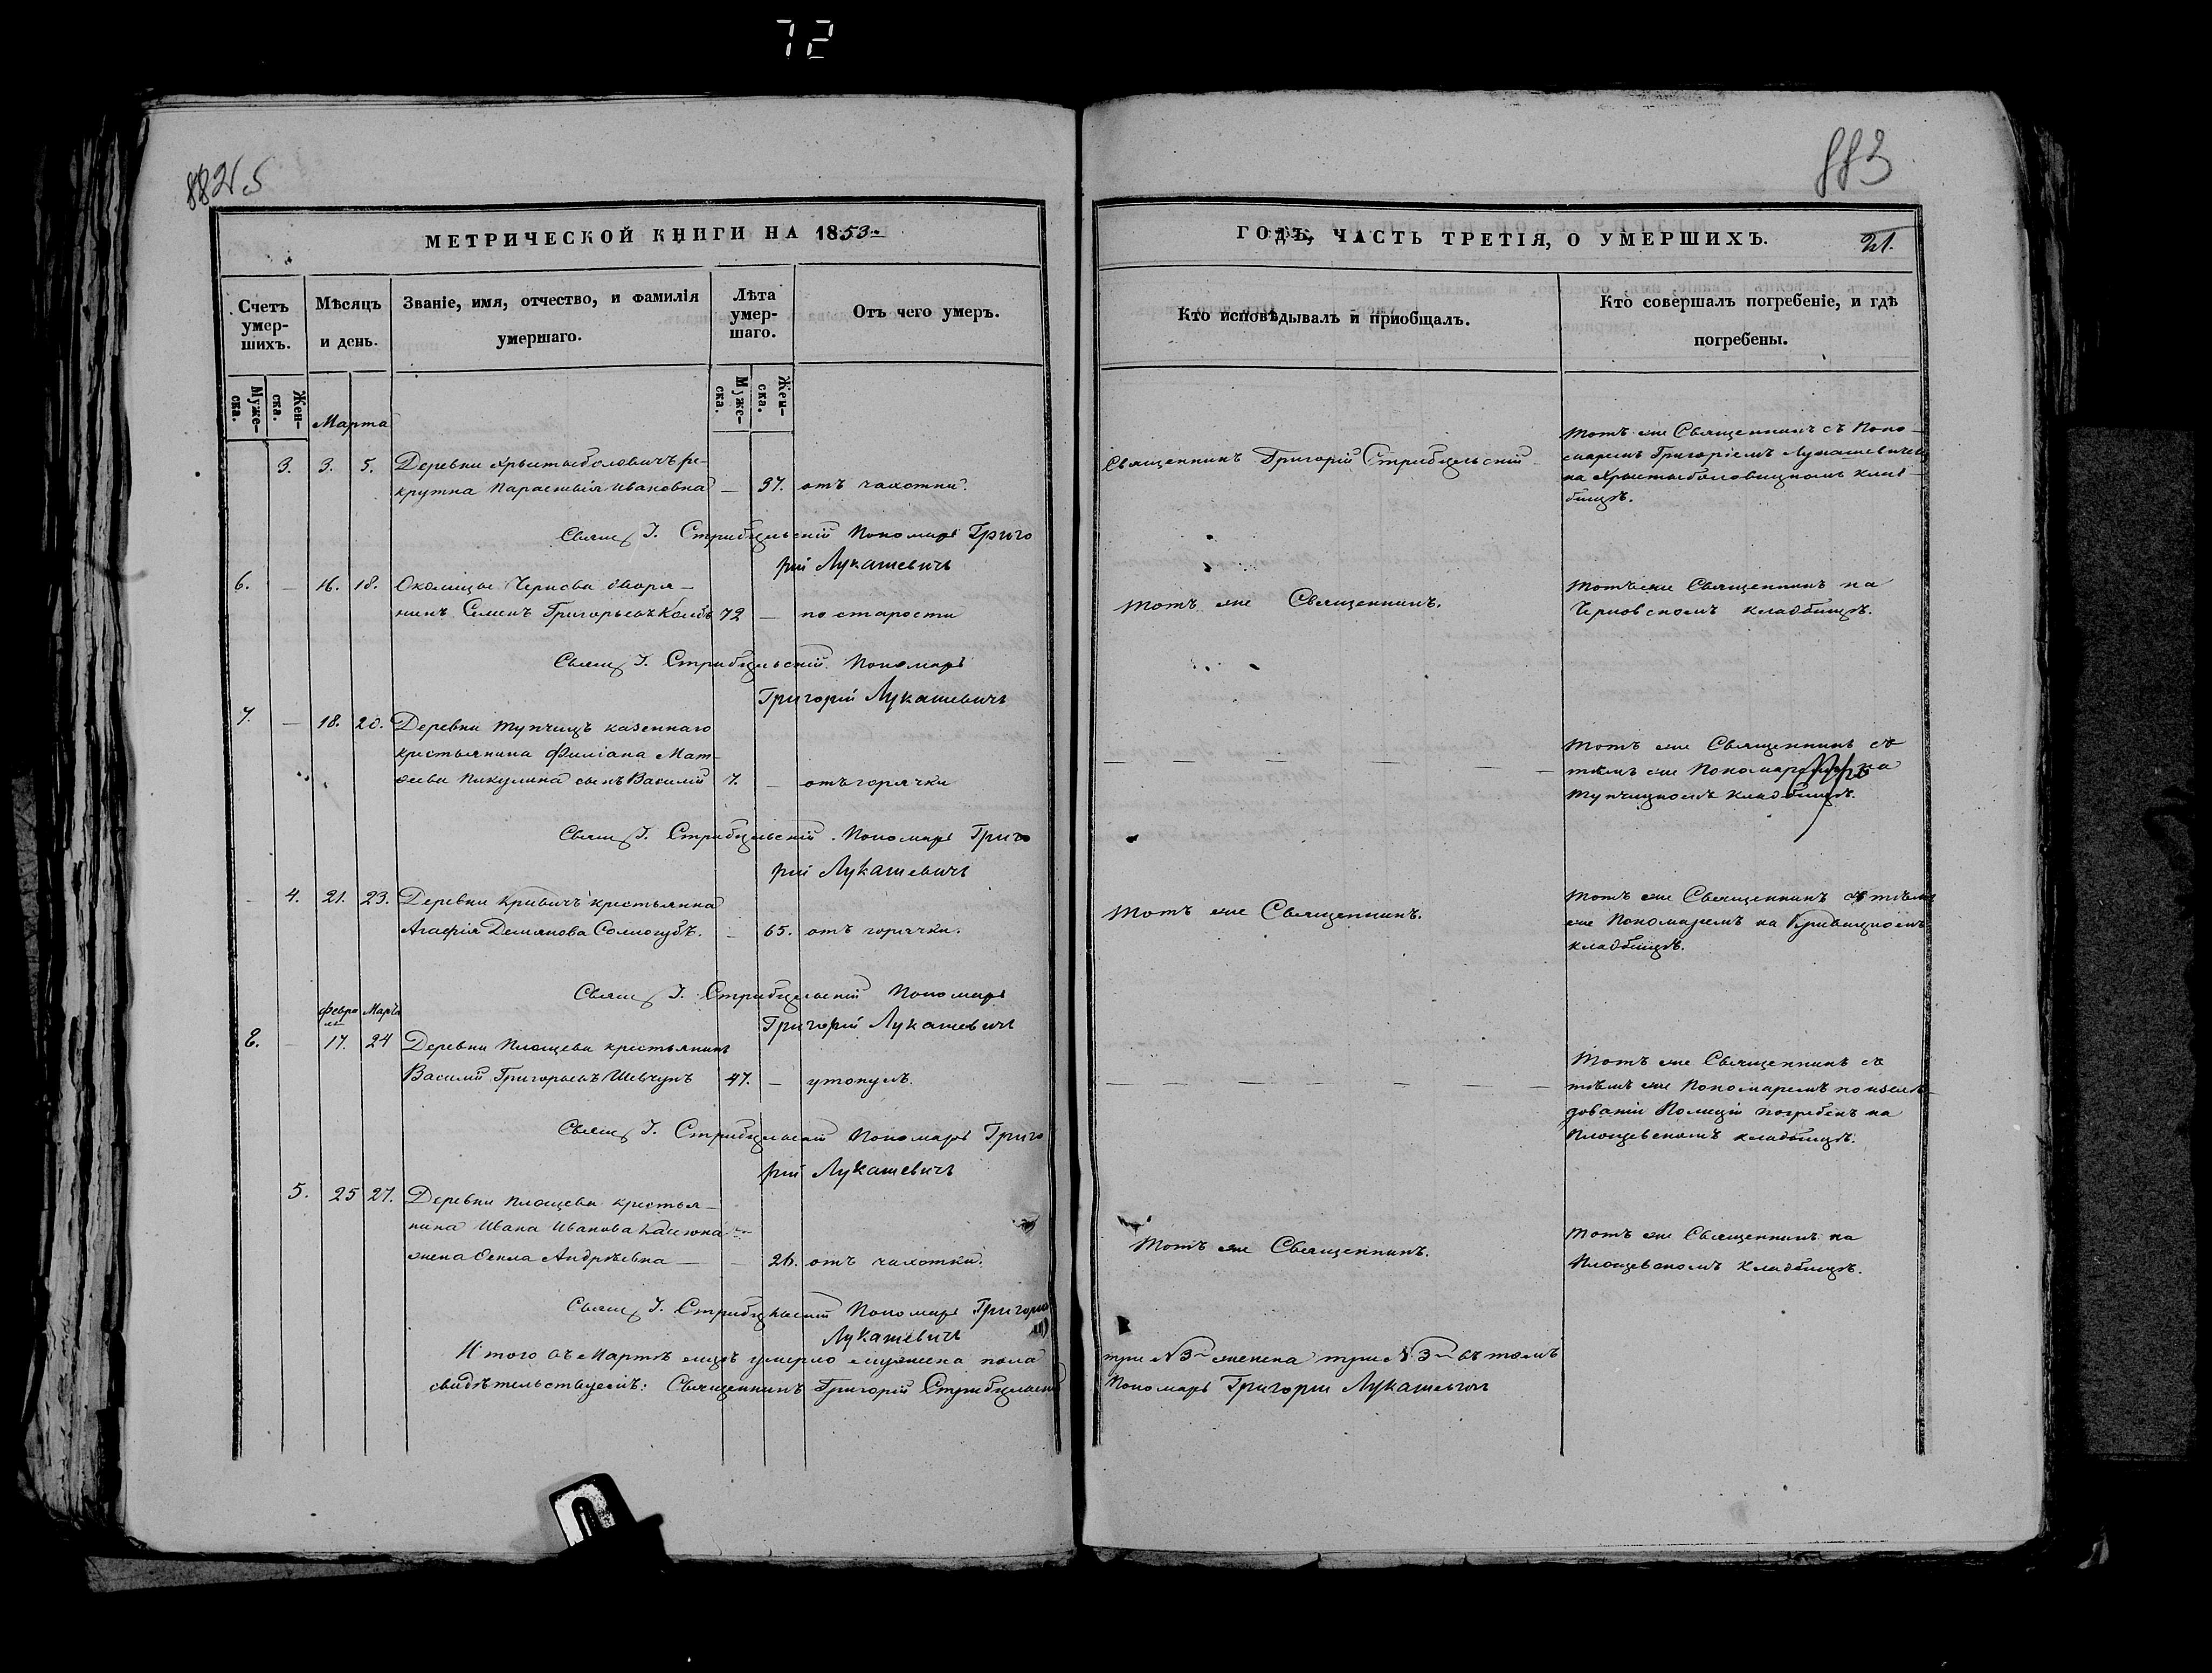 72
882 об
883
МЕТРИЧЕСКОЙ КНИГИ НА 1853й
ГОДЪ, ЧАСТЬ ТРЕТІЯ, О УМЕРШИХЪ.
21.
Счетъ умер-
шихъ.
Мѣсяцъ
и день.
Званіе, имя, отчество, и фамилія
умершаго.
Лѣта
умер-
шаго.
Отъ чего умеръ.
Кто исповѣдывалъ и пріобщалъ.
Кто совершалъ погребеніе, и гдѣ
погребены.
Муже-
ска.
Жен-
ска.
Муже-
ска.
Жен-
ска.
Марта
3. 3. 5. Деревни ре-
крутка Параскевія Ивановна — 37. отъ чахотки.
Священникъ Григорій Стрибульскій
Тотъ же Священникъ съ Поно-
маремъ Григоріемъ Лукашевичемъ
на клад-
бищѣ.
Свящ. Г. Стрибульскій Пономарь Григо
рій Лукашевичъ
6. — 16. 18. Околицы Чернова дворя-
нинъ Семенъ Григорьевъ 72 — по старости
Тотъ же Священникъ.
Тотъ же Священникъ на
Черновскомъ кладбищѣ.
Свящ. Г. Стрибульскій Пономарь
Григорій Лукашевичъ
7. — 18. 20. Деревни Тупчицъ казеннаго
крестьянина Мат-
ѳеева Пикулина сынъ Василій 7. — отъ горячки
Тотъ же Священникъ съ
тѣмъ же Пономаремъ на
Тупчицкомъ кладбищѣ.
Свящ. Г. Стрибульскій Пономарь Григо
рій Лукашевичъ
— 4. 21. 23. Деревни Кривичъ крестьянка
Агафія Демянова Сологубъ. — 65. отъ горячки.
Тотъ же Священникъ.
Тотъ же Священникъ съ тѣмъ
же Пономаремъ на Кривицкомъ
кладбищѣ.
Свящ. Г. Стрибульскій Пономарь
Григорій Лукашевичъ
Февра Марта
ля
8. — 17. 24 Деревни Площева крестьянинъ
Василій Григорьевъ Шевчукъ 47. — утонулъ.
Тотъ же Священникъ съ
тѣмъ же Пономаремъ по изслѣ-
дованіи Полиціи погребенъ на
Площевскомъ кладбищѣ.
Свящ. Г. Стрибульскій Пономарь Григо
рій Лукашевичъ
5. 25 27. Деревни Площева крестья-
нина Ивана Иванова
жена Ѳекла Андрѣевна — 26. отъ чахотки.
Тотъ же Священникъ.
Тотъ же Священникъ на
Площевскомъ кладбищѣ.
Свящ. Г. Стрибульскій Пономарь Григорій
Лукашевичъ
Итого въ Мартѣ мцѣ умерло мужеска пола
три №3 женска три №3 въ томъ
свидѣтельствуемъ: Священникъ Григорій Стрибульскій
Пономарь Григорій Лукашевичъ